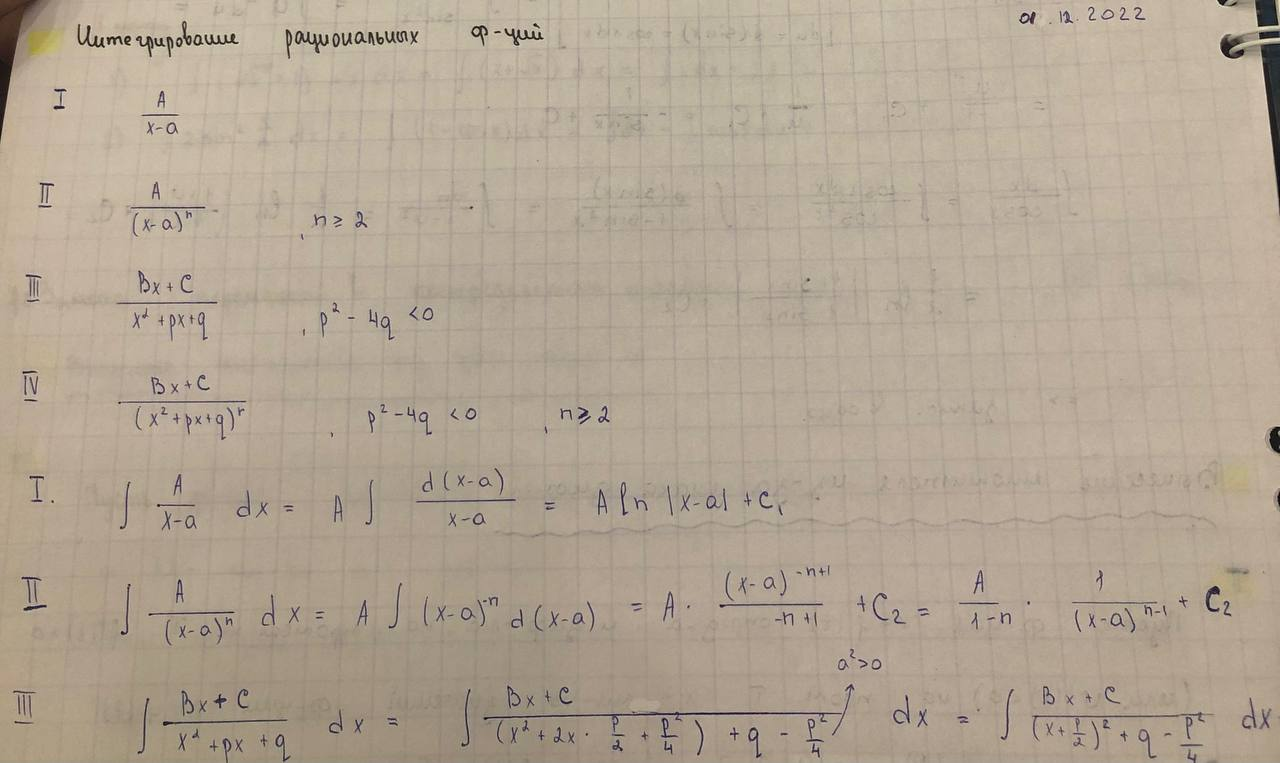 01.12.2022
Интегрирование рациональных ф-ций
I A/(x-a)
II A/(x-a)^n , n ≥ 2
III (Bx + C)/(x² + px + q) , p² - 4q < 0
IV (Bx + C)/(x² + px + q)^n , p² - 4q < 0 , n ≥ 2
I. ∫ A/(x-a) dx = A ∫ d(x-a)/(x-a) = A ln |x-a| + C₁
II ∫ A/(x-a)^n dx = A ∫ (x-a)^(-n) d(x-a) = A · (x-a)^(-n+1)/(-n+1) + C₂ = A/(1-n) · 1/(x-a)^(n-1) + C₂
a² > 0
III ∫ (Bx + C)/(x² + px + q) dx = ∫ (Bx + C)/((x² + 2x · p/2 + p²/4) + q - p²/4) dx = ∫ (Bx + C)/((x + p/2)² + q - p²/4) dx